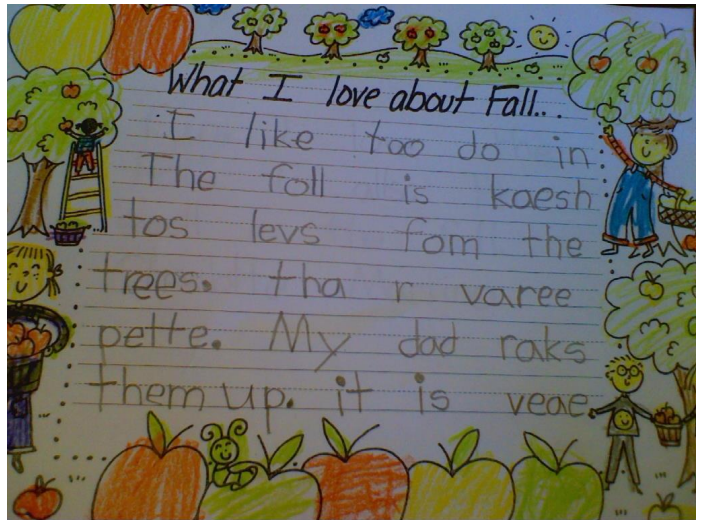 What I love about Fall...
I like too do in
The foll is kaesh
tos levs fom the
trees. tha r varee
pette. My dad raks
them up. it is veae